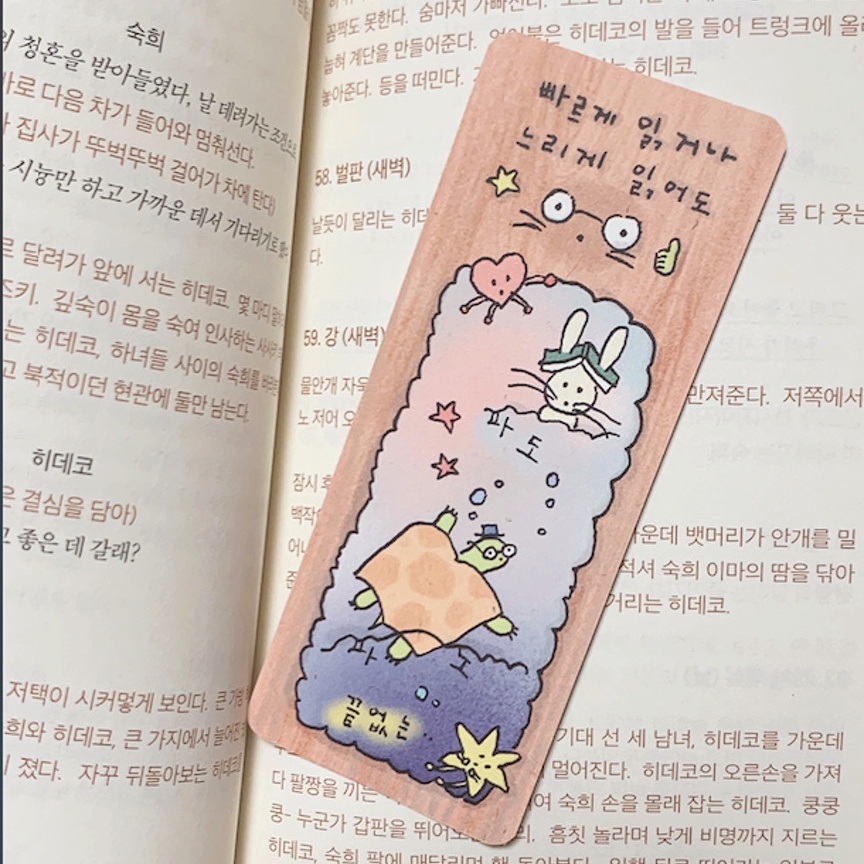 숙희
청혼을 받아들였다, 날 데려가는 조건으로
바로 다음 차가 들어와 멈춰선다.
집사가 뚜벅뚜벅 걸어가 차에 탄다)
시늉만 하고 가까운 데서 기다리기로 했
달려가 앞에 서는 히데코. 몇 마디
즈키. 깊숙이 몸을 숙여 인사하는
는 히데코, 하녀들 사이의 숙희를
고 북적이던 현관에 둘만 남는다.
히데코
은 결심을 담아)
고 좋은 데 갈래?
저택이 시커멓게 보인다. 큰
희와 히데코, 큰 가지에서
졌다. 자꾸 뒤돌아보는 히데코
꼼짝도 못한다. 숨마저 가빠진다.
눕혀 계단을 만들어준다. 히데코의 발을 들어 트렁크에 올
놓아준다. 등을 떠민다. 는 히데코.
58. 벌판 (새벽)
날듯이 달리는 히데 둘 다 웃는
다.
59. 강 (새벽)
물안개 자욱 만져준다. 저쪽에서
노 저어 오
잠시 후
백작 가운데 뱃머리가 안개를 밀
어 적셔 숙희 이마의 땀을 닦아
준 거리는 히데코.
기대 선 세 남녀, 히데코를 가운데
멀어진다. 히데코의 오른손을 가져
다 팔짱을 끼는 여 숙희 손을 몰래 잡는 히데코. 쿵쿵
쿵- 누군가 갑판을 뛰어 리. 흠칫 놀라며 낮게 비명까지 지르는
히데코, 숙희 팔에 매달리며
빠르게 읽거나
느리게 읽어도
파도
파도
끝없는